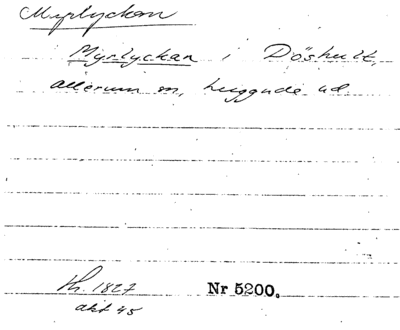 Myrlyckan
Myrlyckan i Döshult,
Allerum sn, Luggude hd
th. 1827
akt 45
Nr 5200.